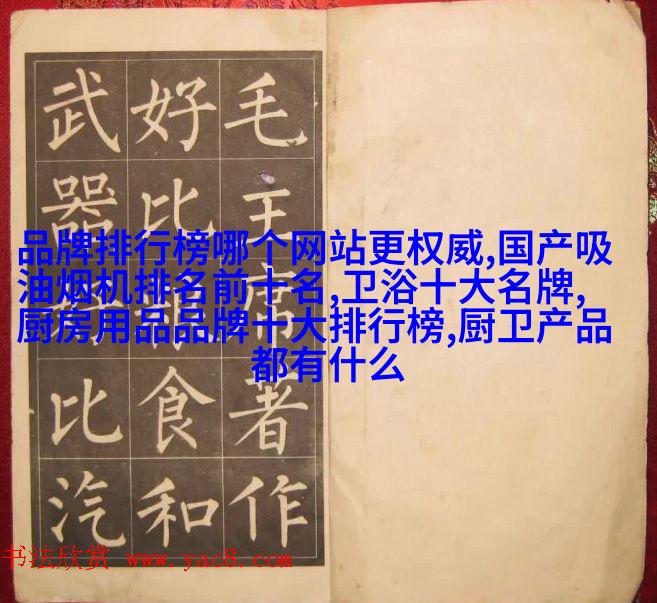 毛主席著作
好比粮食和
武器好比汽
品牌排行榜哪个网站更权威,国产吸
油烟机排名前十名,卫浴十大名牌,
厨房用品品牌十大排行榜,厨卫产品
都有什么
书法欣赏 www.yac8.com